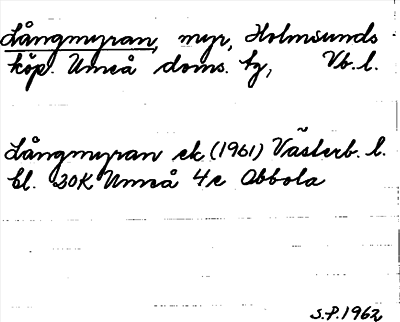 Långmyran, myr, Holmsunds
köp. Umeå doms. by, Vb. l.
Långmyran ek (1961) Västerb. l.
bl. 20K Umeå 4c Obbola
S.P. 1962